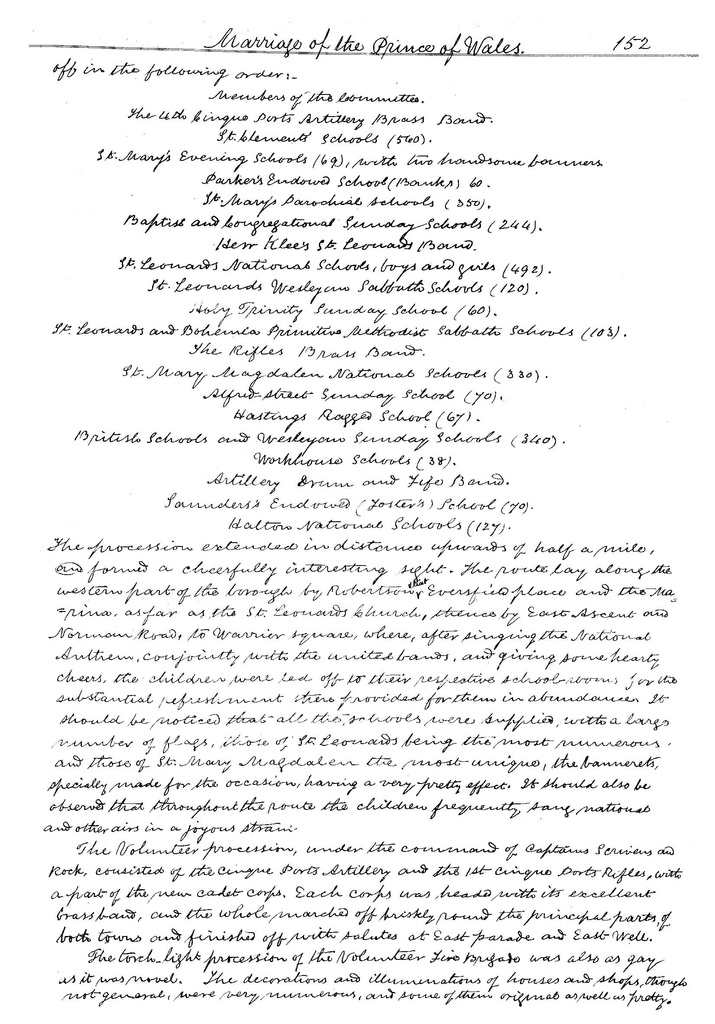 Marriage of the Prince of Wales. 152
off in the following order:-
Members of the Committee.
The 4th Cinque Ports Artillery Brass Band.
St. Clements' Schools (560).
St. Mary's Evening Schools (69), with two handsome banners
Parker's Endowed School (Banks) 60.
St. Mary's Parochial schools (350).
Baptist and Congregational Sunday Schools (244).
Herr Klee's St. Leonards Band.
St. Leonards National Schools, boys and girls (492).
St. Leonards Wesleyan Sabbath Schools (120).
Holy Trinity Sunday School (60).
St. Leonards and Bohemia Primitive Methodist Sabbath Schools (103).
The Rifles Brass Band.
St. Mary Magdalen National Schools (330).
Alfred-street Sunday School (70).
Hastings Ragged School (67).
British Schools and Wesleyan Sunday Schools (340).
Workhouse Schools (38).
Artillery Drum and Fife Band.
Saunders's Endowed (Foster's) School (70).
Halton National Schools (127).
The procession extended in distance upwards of half a mile,
and formed a cheerfully interesting sight. The route lay along the
western part of the borough by Robertson street Eversfield place and the Ma-
=rina, as far as the St. Leonards Church, thence by East Ascent and
Norman Road, to Warrior square, where, after singing the National
Anthem, conjointly with the united bands, and giving some hearty
cheers, the children were led off to their respective school-rooms for the
substantial refreshment there provided for them in abundance. It
should be noticed that all the schools were supplied, with a large
number of flags, those of St. Leonards being the most numerous.
and those of St. Mary Magdalen the most unique, the bannerets,
specially made for the occasion, having a very pretty effect. It should also be
observed that throughout the route the children frequently sang national
and other airs in a joyous strain.
The Volunteer procession, under the command of Captains Scrivens and
Rock, consisted of the Cinque Ports Artillery and the 1st Cinque Ports Rifles, with
a part of the new cadet corps. Each corps was headed with its excellent
brass band, and the whole marched off briskly round the principal parts, of
both towns and finished off with salutes at East parade and East Well.
The torch-light procession of the Volunteer Fire Brigade was also as gay
as it was novel. The decorations and illuminations of houses and shops, though
not general, were very numerous, and some of them original as well as pretty.